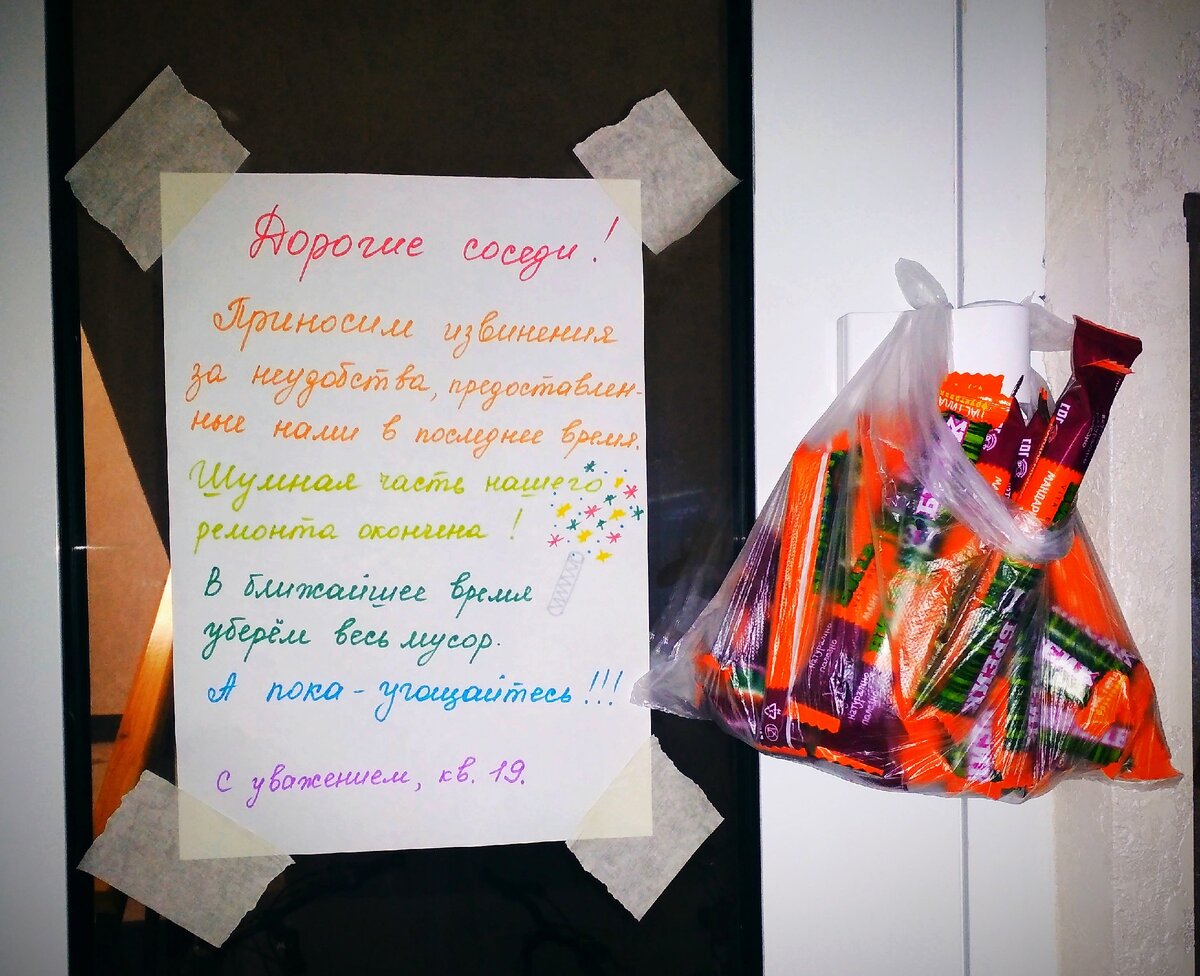 Дорогие соседи!
Приносим извинения
за неудобства, предоставлен-
ные нами в последнее время.
Шумная часть нашего
ремонта окончена!
В ближайшее время
уберём весь мусор.
А пока - угощайтесь!!!
С уважением, кв. 19.